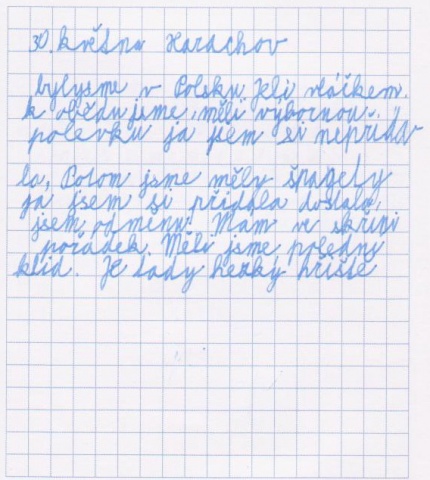 30. května Harachov
bylysme v Polsku Jeli vláčkem.
k obědu jsme, měli výbornou.
polevku ja jsem si nepřida
la, Potom jsme měly špagety
ja jsem si přidala dostala
jsem odměnu. Mam ve skřini
pořádek. Měli jsme poledni
klid. Je tady hezký hřiště